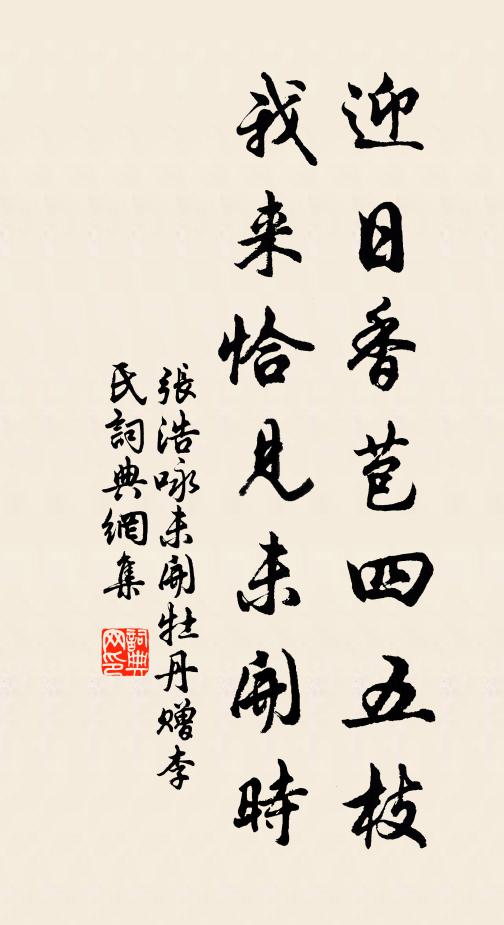 迎日香苞四五枝
我来恰見未開時
張浩咏未開牡丹赠李
氏詞典網集
詞典网印